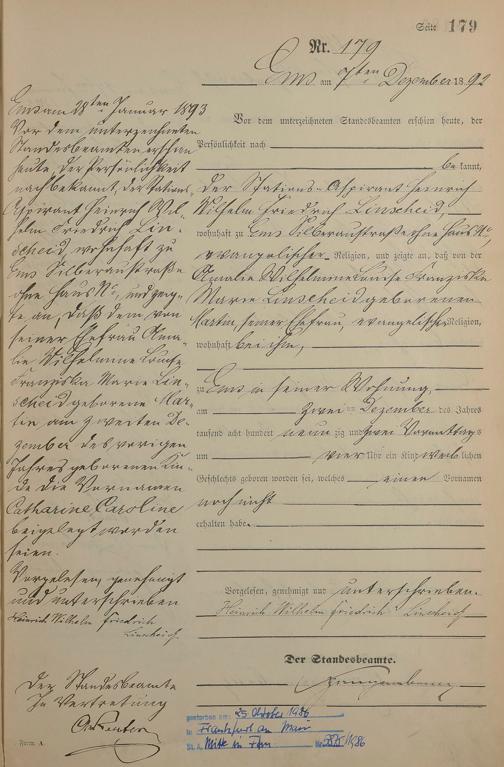 Seite 179
Nr. 179
Ems am 7ten Dezember 1892
Vor dem unterzeichneten Standesbeamten erschien heute, der
Persönlichkeit nach
bekannt,
der Stations-Aspirant Heinrich
Wilhelm Friedrich Linscheid,
wohnhaft zu Ems Silberaustraße ohne Haus No,
evangelischer Religion, und zeigte an, daß von der
Amalie Wilhelmine Louise Franziska
Marie Linscheid geborenen
seiner Ehefrau, evangelischer Religion,
wohnhaft bei ihm,
zu Ems in seiner Wohnung,
am zwei Dezember des Jahres
tausend acht hundert neunzig und zwei Vormittags
um vier Uhr ein Kind weiblichen
Geschlechts geboren worden sei, welches einen Vornamen
noch nicht
erhalten habe.
Vorgelesen, genehmigt und unterschrieben.
Heinrich Wilhelm Friedrich Linscheid
Der Standesbeamte.
Ems am 28ten Januar 1893
Vor dem unterzeichneten
Standesbeamten erschien
heute, der Persönlichkeit
nach bekannt, der Stations-
Aspirant Heinrich Wil-
helm Friedrich Lin-
scheid, wohnhaft zu
Ems Silberaustraße
ohne Haus No, und zeig-
te an, daß dem von
seiner Ehefrau Ama-
lie Wilhelmine Louise
Franziska Marie Lin-
scheid geborene
am zweiten De-
zember des vorigen
Jahres geborenen Kin-
de die Vornamen
Catharine Caroline
beigelegt worden
seien.
Vorgelesen, genehmigt
und unterschrieben
Heinrich Wilhelm Friedrich
Linscheid
Der Standesbeamte
In Vertretung
Form. A.
gestorben am: 25 Oktober 1986
in Frankfurt am Main
St. A. Mitte in Ffm Nr. /1986